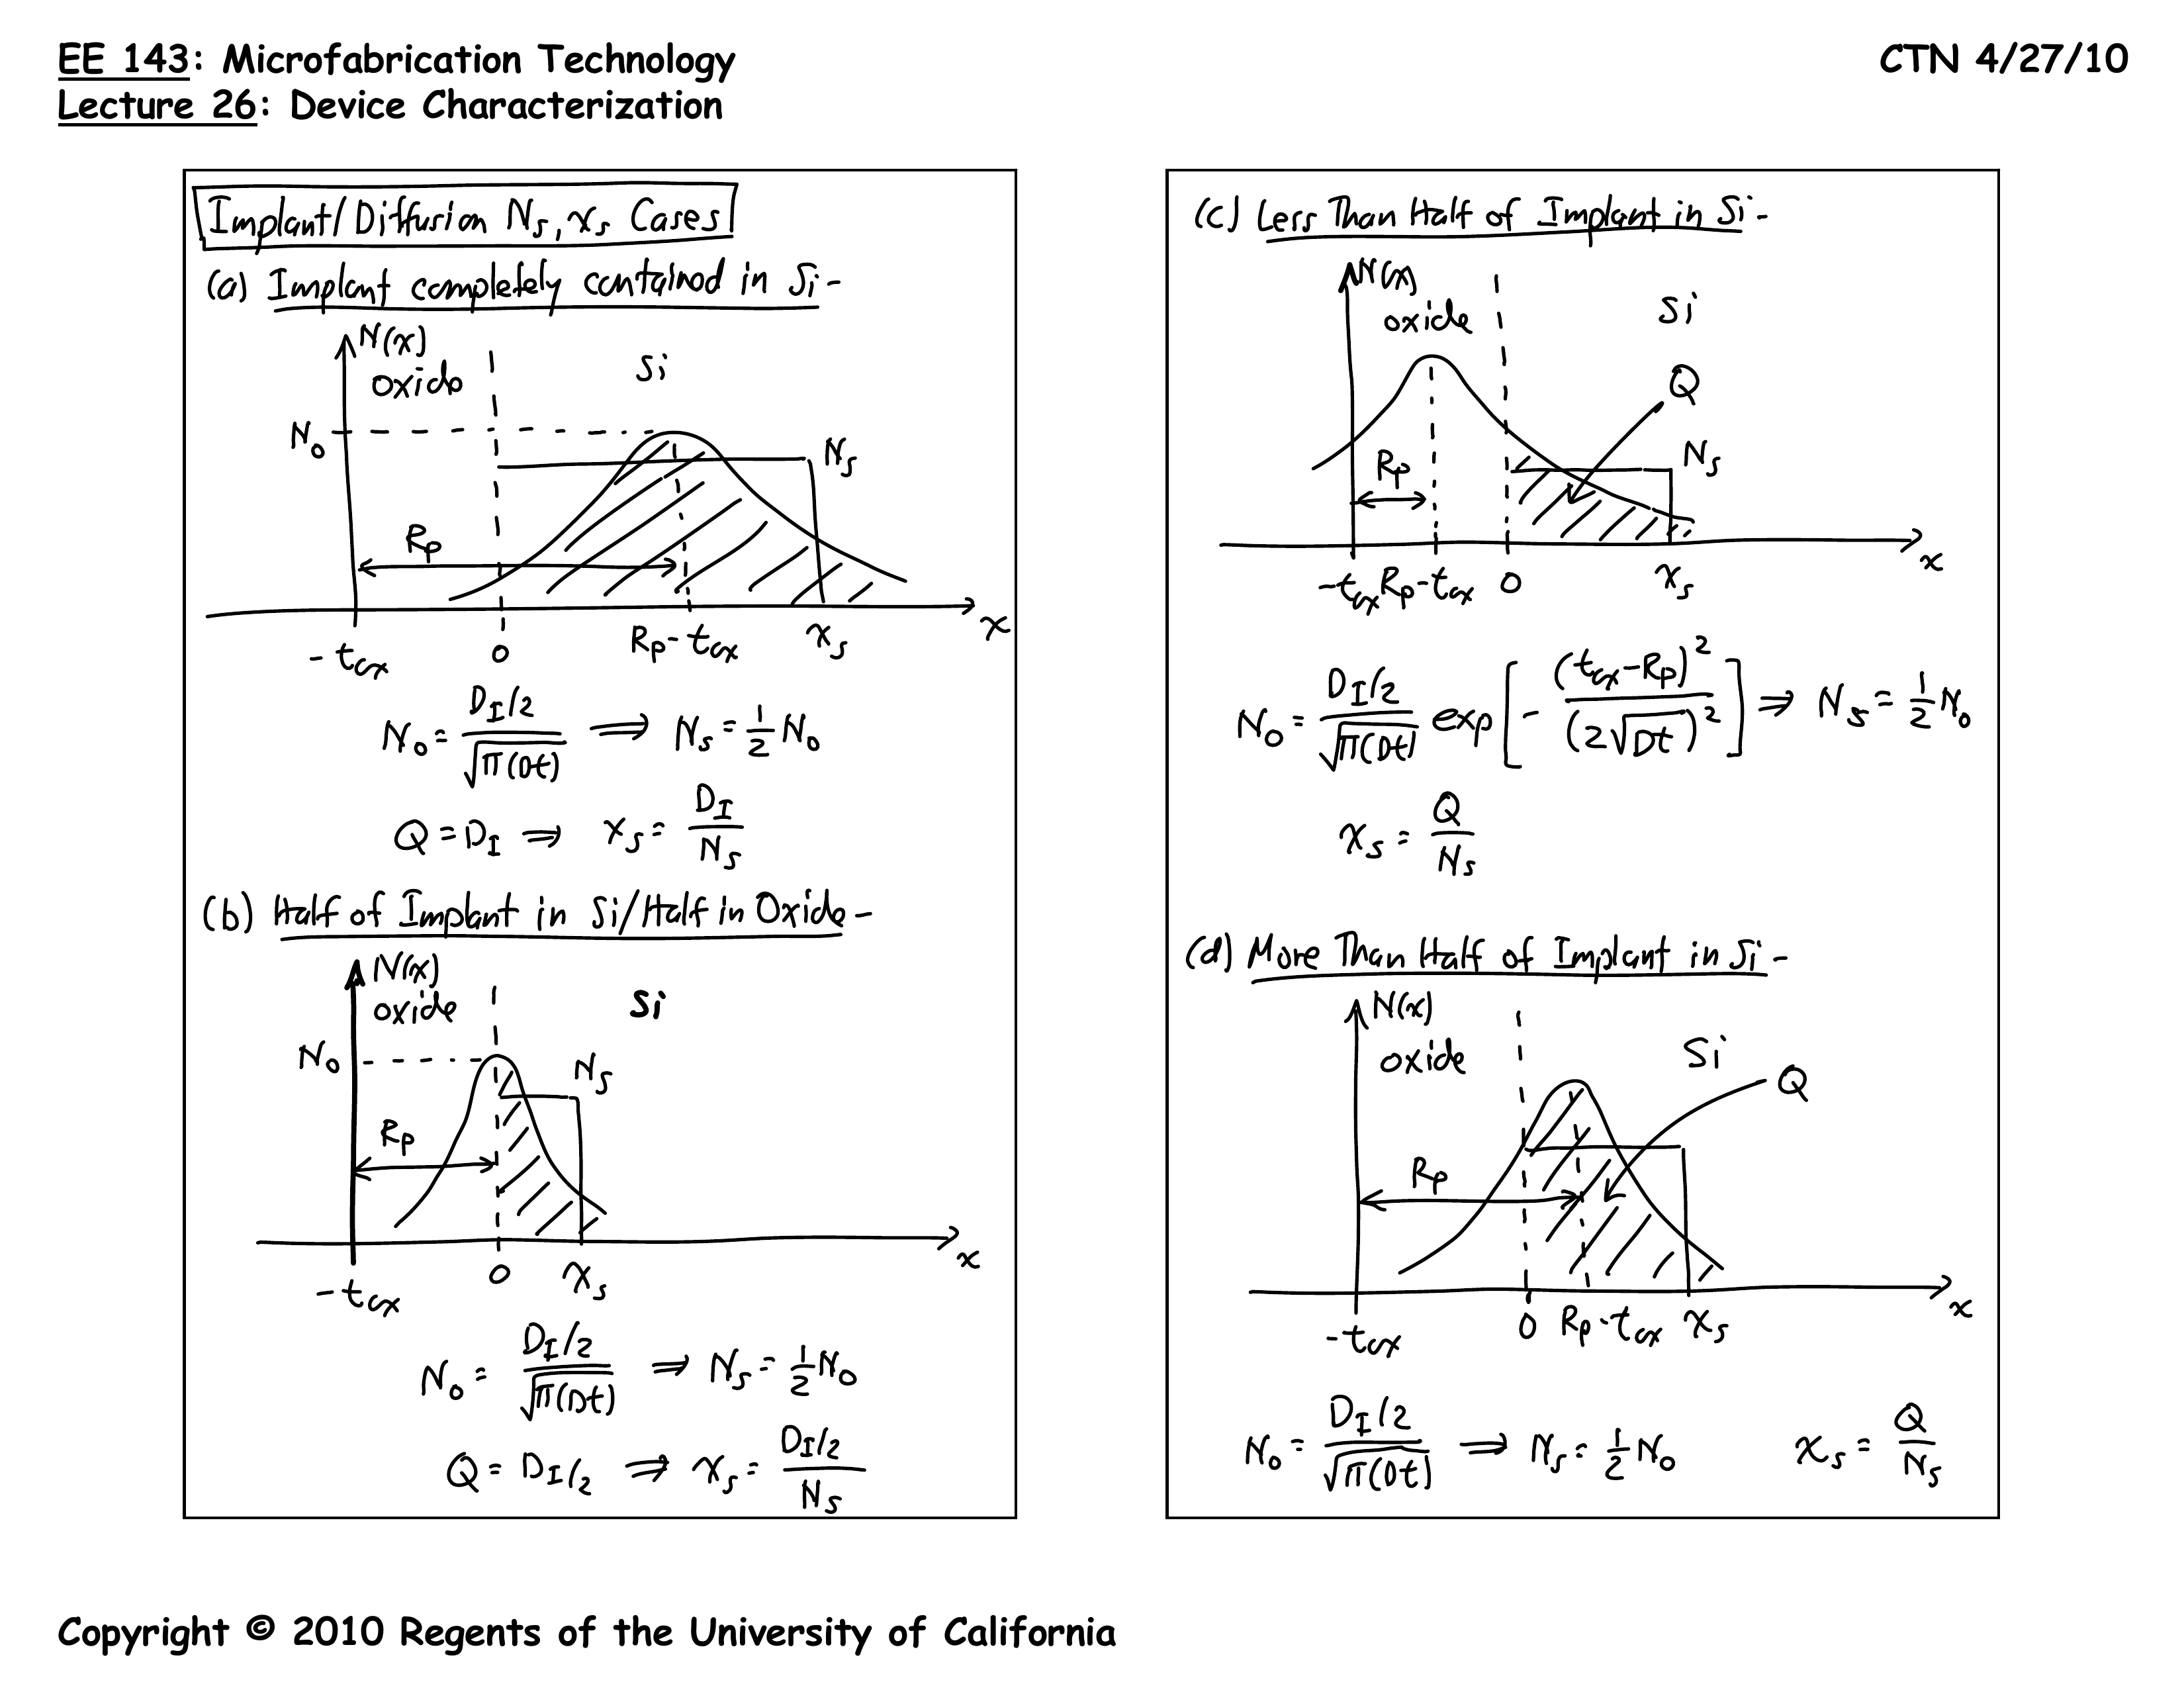 EE 143: Microfabrication Technology
CTN 4/27/10
Lecture 26: Device Characterization
Implant/Diffusion Ns, xs Cases
(a) Implant completely contained in Si-
N(x)
oxide
Si
No
Ns
Rp
x
-tox
0
Rp-tox
xs
No = DI/2 / √π(Dt) ⟹ Ns = 1/2 No
Q = DI ⟹ xs = DI / Ns
(b) Half of Implant in Si/Half in Oxide-
N(x)
oxide
Si
No
Ns
Rp
x
-tox
0
xs
No = DI/2 / √π(Dt) ⟹ Ns = 1/2 No
Q = DI/2 ⟹ xs = DI/2 / Ns
(c) Less Than Half of Implant in Si-
N(x)
oxide
Si
Q
Ns
Rp
x
-tox
Rp-tox
0
xs
No = DI/2 / √π(Dt) exp[- (tox-Rp)² / (2√Dt)²] ⟹ Ns = 1/2 No
xs = Q / Ns
(d) More Than Half of Implant in Si-
N(x)
oxide
Si
Q
Rp
x
-tox
0
Rp-tox
xs
No = DI/2 / √π(Dt) ⟹ Ns = 1/2 No
xs = Q / Ns
Copyright © 2010 Regents of the University of California